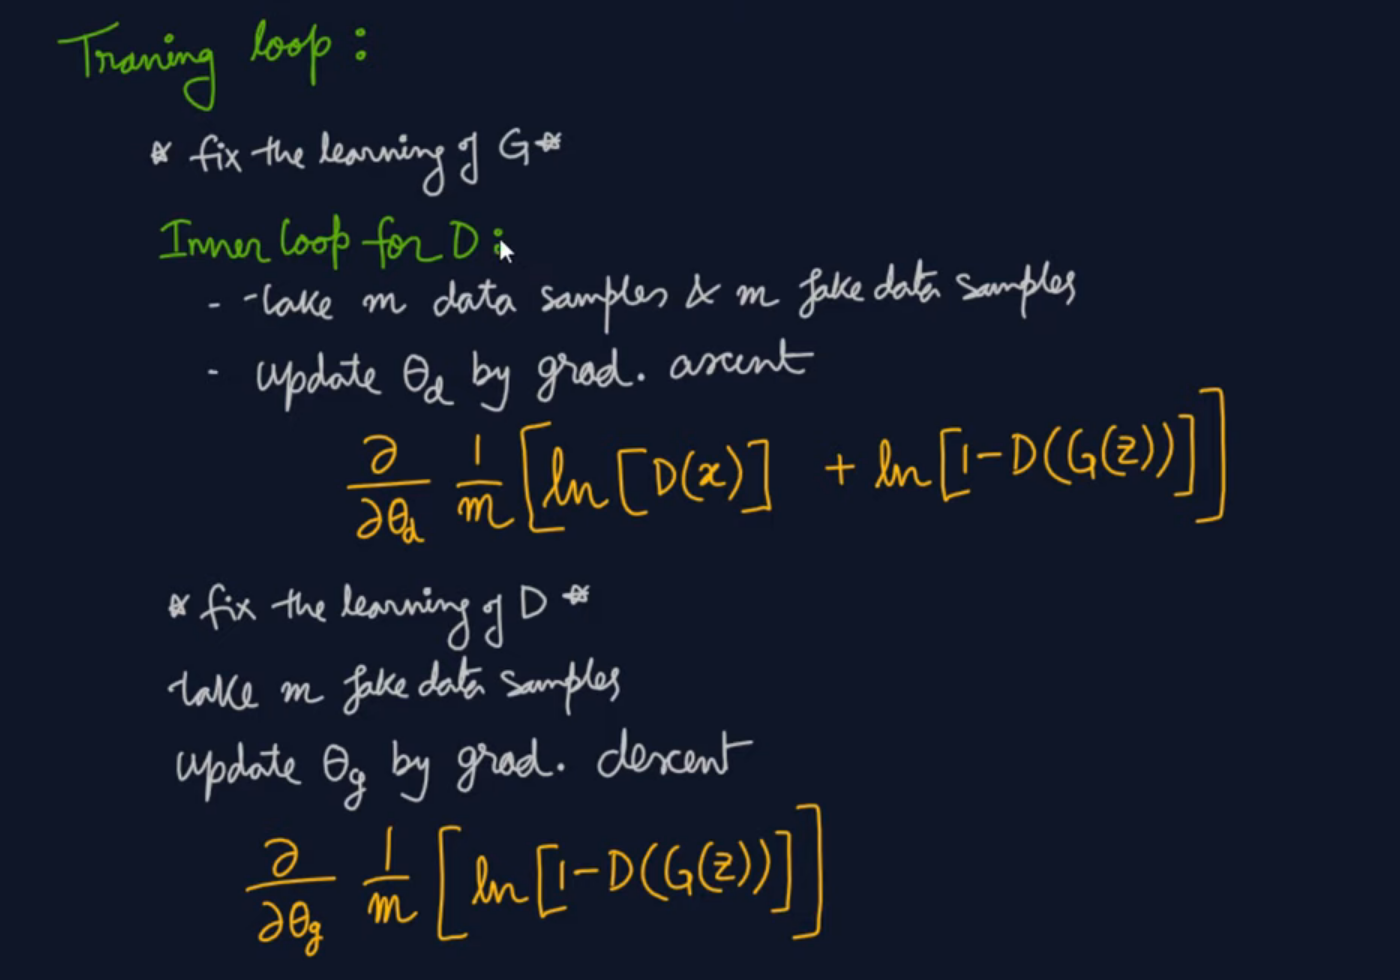 Traning loop :
* fix the learning of G *
Inner loop for D :
- take m data samples & m fake data samples
- update θd by grad. ascent
∂/∂θd 1/m [ln [D(x)] + ln [1-D(G(z))]]
* fix the learning of D *
take m fake data samples
update θg by grad. descent
∂/∂θg 1/m [ln [1-D(G(z))]]